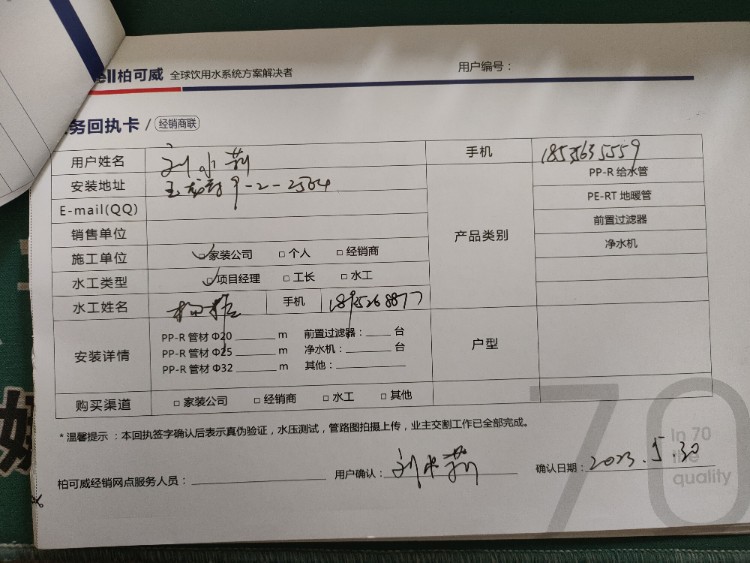 ell柏可威 全球饮用水系统方案解决者 用户编号：
务回执卡 / 经销商联
用户姓名 刘小莉 手机 18535635559
安装地址 玉龙村9-2-2504 PP-R 给水管
E-mail(QQ) PE-RT 地暖管
销售单位 产品类别 前置过滤器
施工单位 ☑家装公司 □个人 □经销商 净水机
水工类型 ☑项目经理 □工长 □水工
水工姓名 手机
安装详情 PP-R 管材 Φ20 ______ m 前置过滤器：____ 台 户型
PP-R 管材 Φ25 ______ m 净水机：______ 台
PP-R 管材 Φ32 ______ m 其他：______
购买渠道 □家装公司 □经销商 □水工 □其他
*温馨提示：本回执签字确认后表示真伪验证，水压测试，管路图拍摄上传，业主交割工作已全部完成。
70
In 70
quality
柏可威经销网点服务人员：______ 用户确认：刘小莉 确认日期：2023.5.30